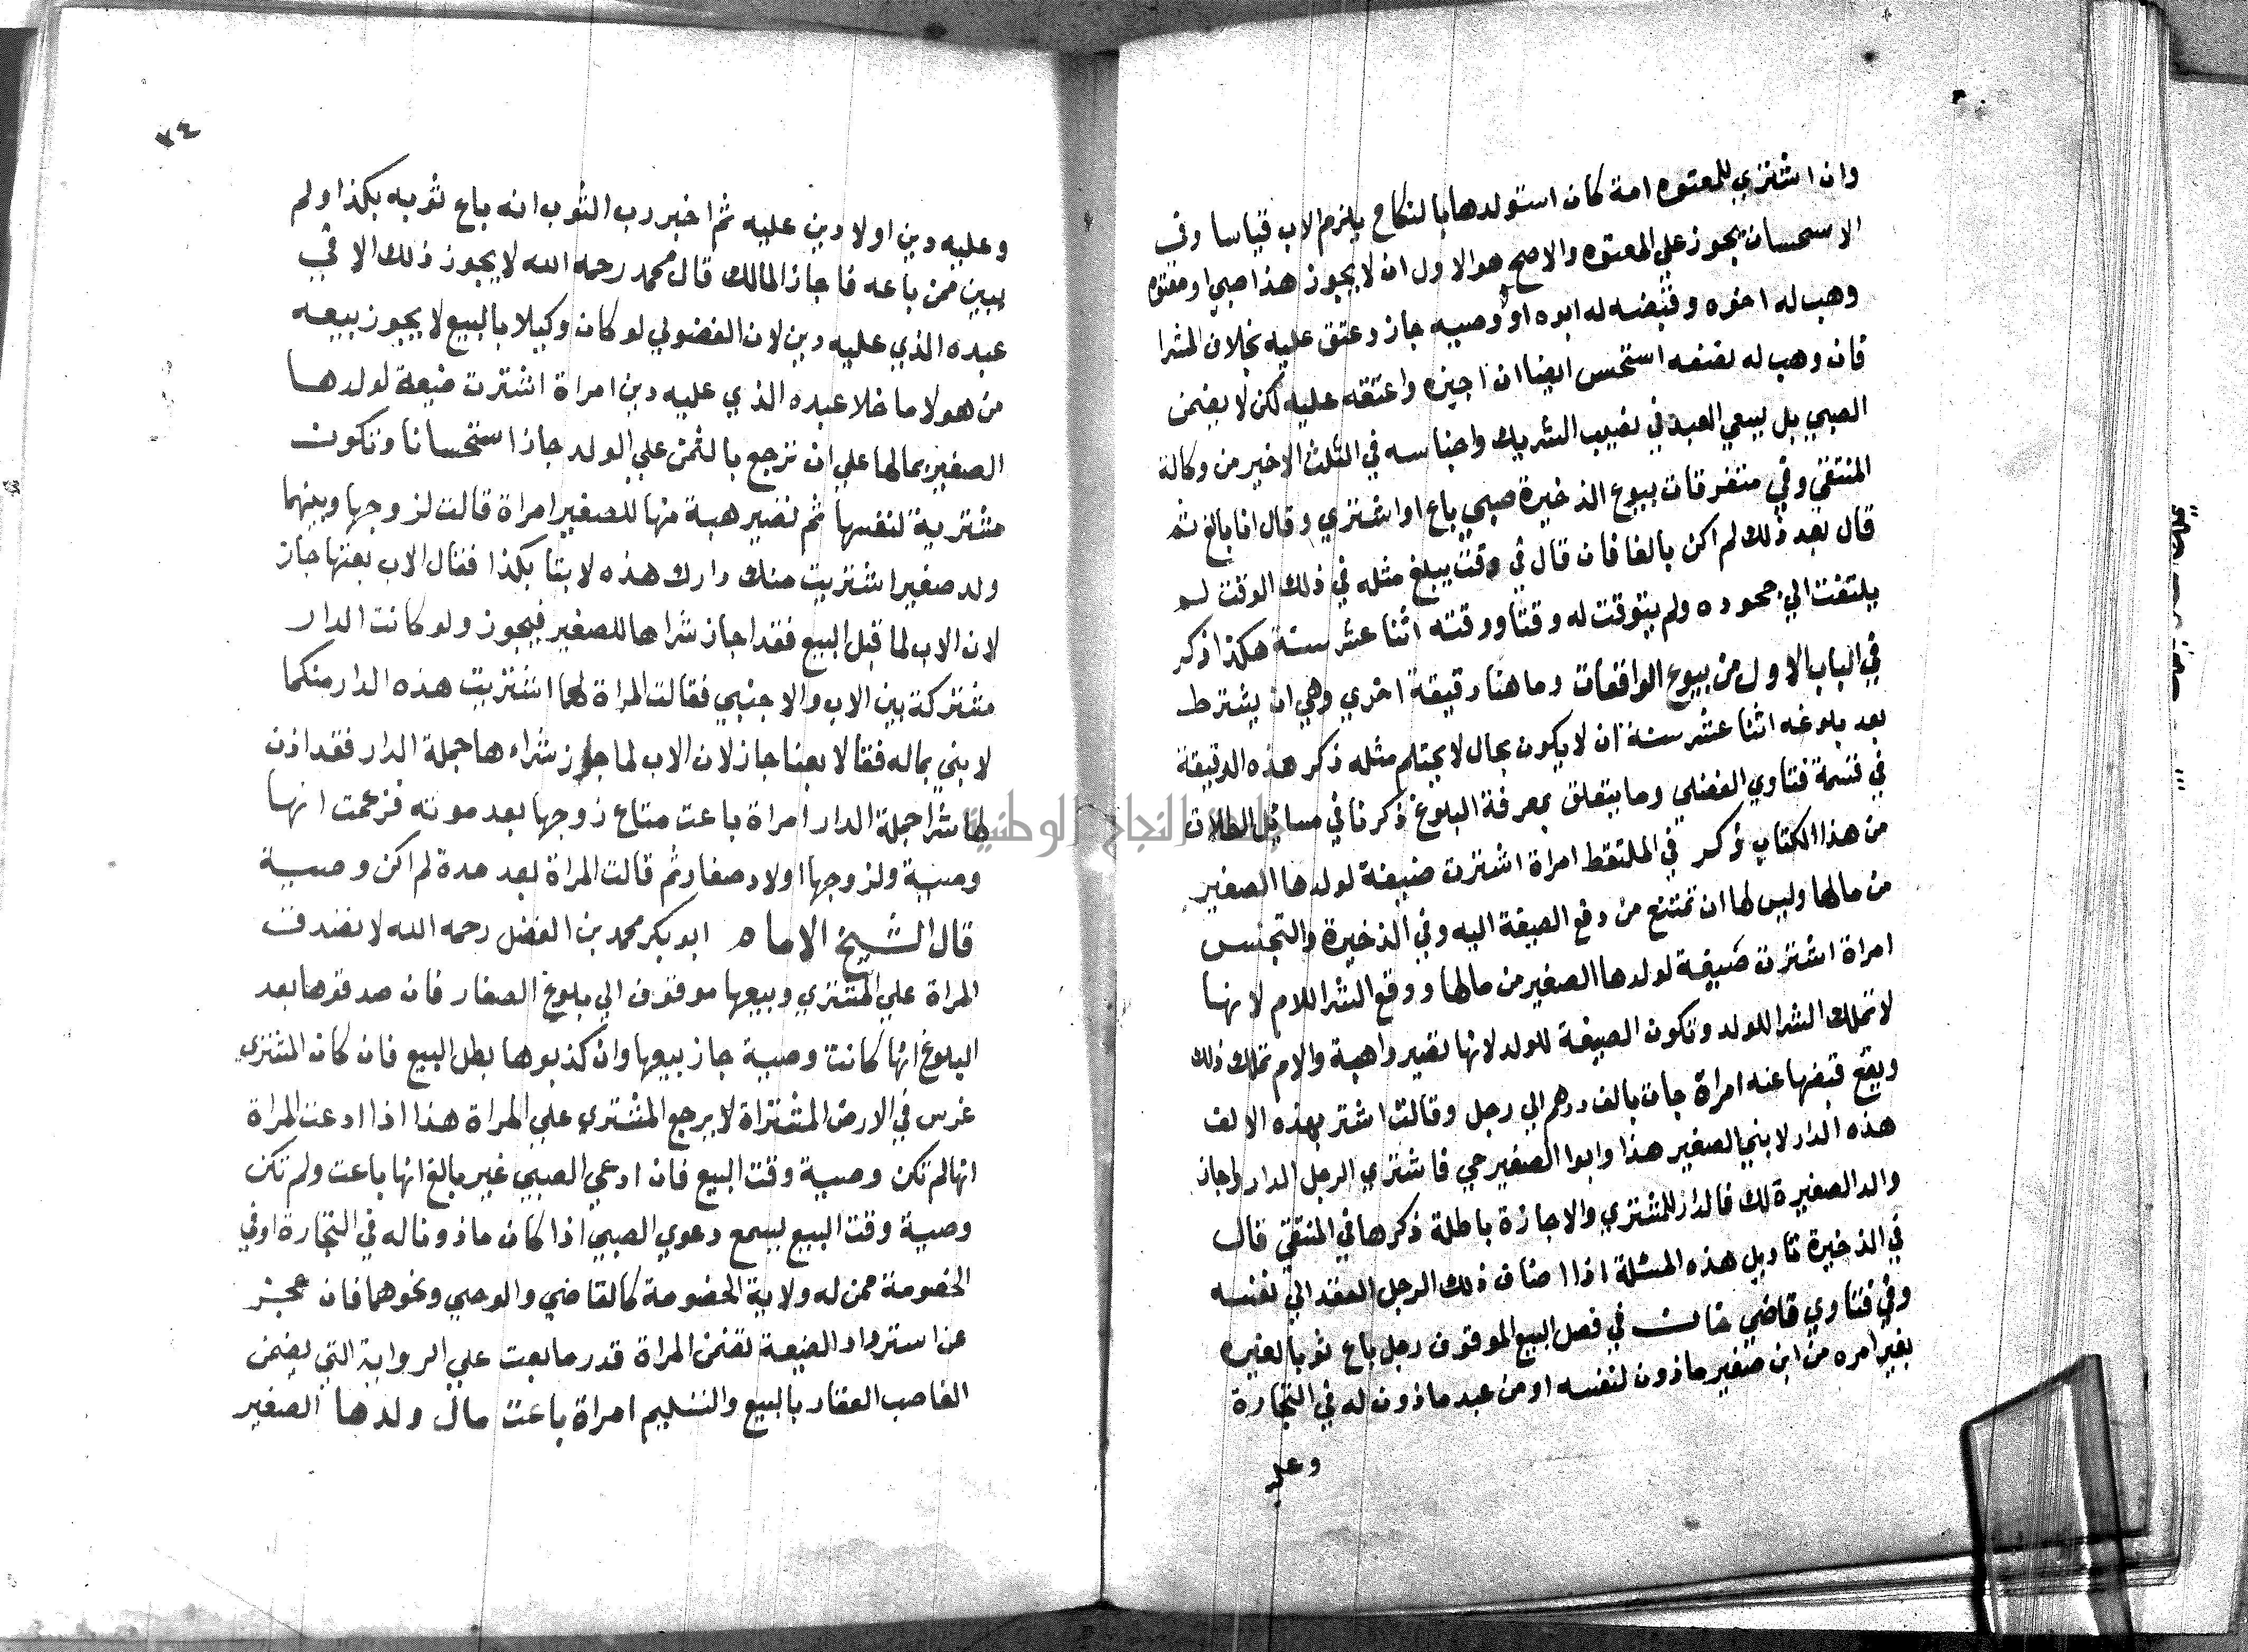 وان اشتري للمعتوه امة كان استولدها بالنكاح يلزم الاب قياسا وفي
الاستحسان يجوز علي المعتوه والاصح هو الاول ان لا يجوز هذا صبي او معتوه
وهب له اخوه وقبضه له ابوه او وصيه جاز وعتق عليه بخلاف الشرا
فان وهب له نصفه استحسن ايضا ان اجيزه واعتقه عليه لكن لا يضمن
الصبي بل يسعي العبد في نصيب الشريك واجناسه في الثلث الاخير من وكالة
المنتقي وفي متفرقات بيوع الذخيرة صبي باع او اشتري وقال انا بالغ ثم
قال بعد ذلك لم اكن بالغا فان قال في وقت يبلغ مثله في ذلك الوقت لم
يلتفت الي جحوده ولم يتوقت له وقتا ووقته اثنا عشر سنة هكذا ذكر
في الباب الاول من بيوع الواقعات وما هنا دقيقة اخري وهي ان يشترط
بعد بلوغه اثنا عشر سنة ان لا يكون بحال لا يحتلم مثله ذكر هذه الدقيقة
في قسمة فتاوي الفضلي وما يتعلق بمعرفة البلوغ ذكرنا في مسائل الطلاق
من هذا الكتاب ذكر في الملتقط امراة اشترت ضيعة لولدها الصغير
من مالها وليس لها ان تمتنع من دفع الضيعة اليه وفي الذخيرة والتجنيس
امراة اشترت ضيعة لولدها الصغير من مالها ووقع الشرا للام لانها
لا تملك الشرا للولد وتكون الضيعة للولد لانها تصير واهبة والام تملك ذلك
ويقع قبضها عنه امراة جات بالف درهم الي رجل وقالت اشتر بهذه الالف
هذه الدار لابني الصغير هذا وابوا الصغير حي فاشتري الرجل الدار واجاز
والد الصغيرة لك فالدار للمشتري والاجازة باطلة ذكرها في المنتقي قال
في الذخيرة تاويل هذه المسئلة اذا اضاف ذلك الرجل العقد الي نفسه
وفي فتاوي قاضي خان في فصل البيع الموقوف رجل باع ثوبا لغيره
بغير امره من ابن صغير ماذون لنفسه او من عبد ماذون له في التجارة
وعليه
٣٤
وعليه دين او لا دين عليه ثم اخبر رب الثوب انه باع ثوبه بكذا ولم
يبين ممن باعه فاجاز المالك قال محمد رحمه الله لا يجوز ذلك الا في
عبده الذي عليه دين لان الفضولي لو كان وكيلا بالبيع لا يجوز بيعه
من هولا ما خلا عبده الذي عليه دين امراة اشترت ضيعة لولدها
الصغير بمالها علي ان ترجع بالثمن علي الولد جاز استحسانا وتكون
مشترية لنفسها ثم تصير هبة منها للصغير امراة قالت لزوجها وبينهما
ولد صغير اشتريت منك دارك هذه لابننا بكذا فقال الاب بعتها جاز
لان الاب لما قبل البيع فقد اجاز شراها للصغير فيجوز ولو كانت الدار
مشتركة بين الاب والاجنبي فقالت المراة لهما اشتريت هذه الدار منكما
لابني بماله فقالا بعنا جاز لان الاب لما جوز شراءها جملة الدار فقد اذن
لها شرا جملة الدار امراة باعت متاع زوجها بعد موته فزعمت انها
وصية ولزوجها اولاد صغار ثم قالت المراة بعد مدة لم اكن وصية
قال الشيخ الامام ابو بكر محمد بن الفضل رحمه الله لا تصدق
المراة علي المشتري وبيعها موقوف الي بلوغ الصغار فان صدقوها بعد
البلوغ انها كانت وصية جاز بيعها وان كذبوها بطل البيع فان كان المشتري
غرس في الارض المشتراة لا يرجع المشتري علي المراة هذا اذا ادعت المراة
انها لم تكن وصية وقت البيع فان ادعي الصبي غير بالغ انها باعت ولم تكن
وصية وقت البيع يسمع دعوي الصبي اذا كان ماذونا له في التجارة او في
الخصومة ممن له ولاية الخصومة كالقاضي والوصي ونحوهما فان عجز
عن استرداد الضيعة تضمن المراة قدر ما بعت علي الرواية التي يضمن
الغاصب العقار بالبيع والتسليم امراة باعت مال ولدها الصغير